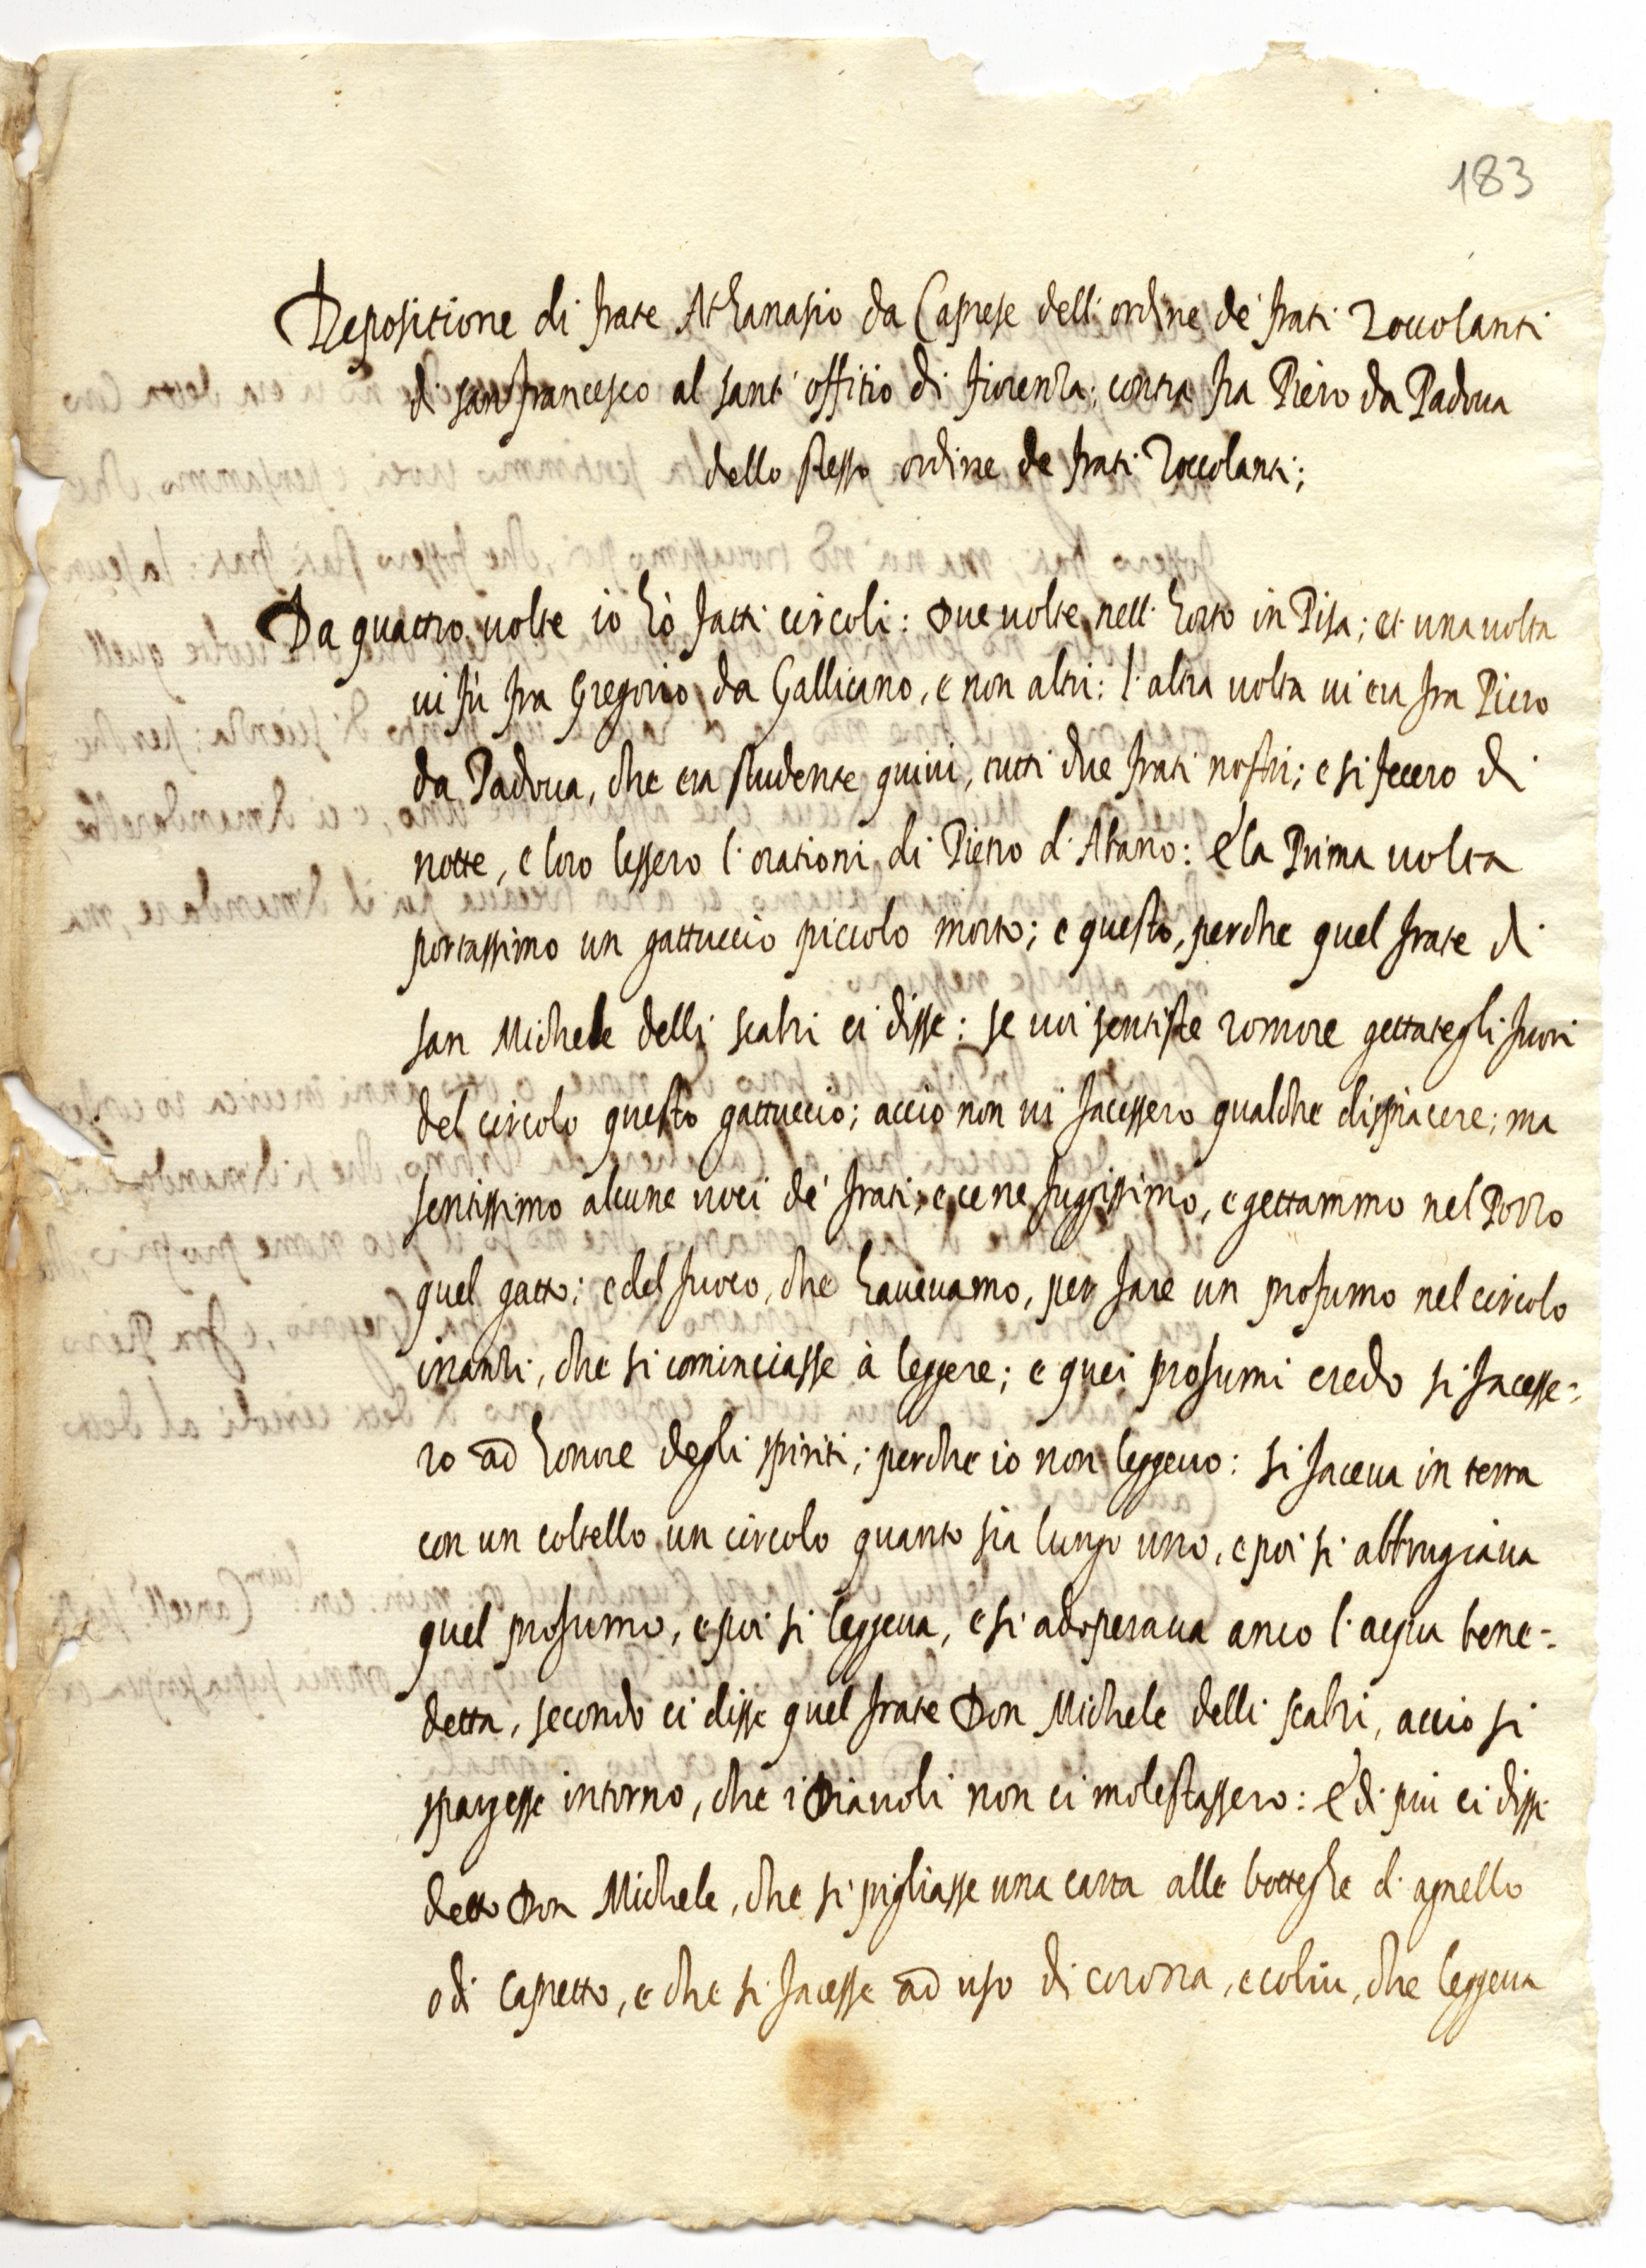 183
Depositione di frate Athanasio da Caprese dell'ordine de' frati Zoccolanti
di san francesco al sant' offitio di fiorenza; contra fra Piero da Padova
dello stesso ordine de frati Zoccolanti;
Da quattro volte io hò fatti circoli: Due volte nell' horto in Pisa; et una volta
vi fù fra Gregorio da Gallicano, e non altri: l'altra volta vi era fra Piero
da Padova, che era studente quivi, tutti due frati nostri; e si fecero di
notte, e loro lessero l'orationi di Pietro d'Abano: E la Prima volta
portassimo un gattuccio piccolo morto; e questo, perche quel frate di
san Michele delli scalzi ci disse: se voi sentiste romore gettategli fuori
del circolo questo gattuccio; accio non vi facessero qualche dispiacere; ma
sentissimo alcune voci de' frati, e ce ne fuggissimo, e gettammo nel Pozzo
quel gatto; e del fuoco, che havevamo, per fare un profumo nel circolo
inanzi, che si cominciasse à leggere; e quei profumi credo si facesse=
ro ad honore degli spiriti; perche io non leggevo: si faceva in terra
con un coltello un circolo quanto sia lungo uno, e poi si abbrugiava
quel profumo, e poi si leggeva, e si adoperava anco l'acqua bene=
detta, secondo ci disse quel frate Don Michele delli scalzi, accio si
spargesse intorno, che i Diavoli non ci molestassero: E di piu ci disse
detto Don Michele, che si pigliasse una carta alle botteghe d'agnello
o di Capretto, e che si facesse ad uso di corona, e colui, che leggeva